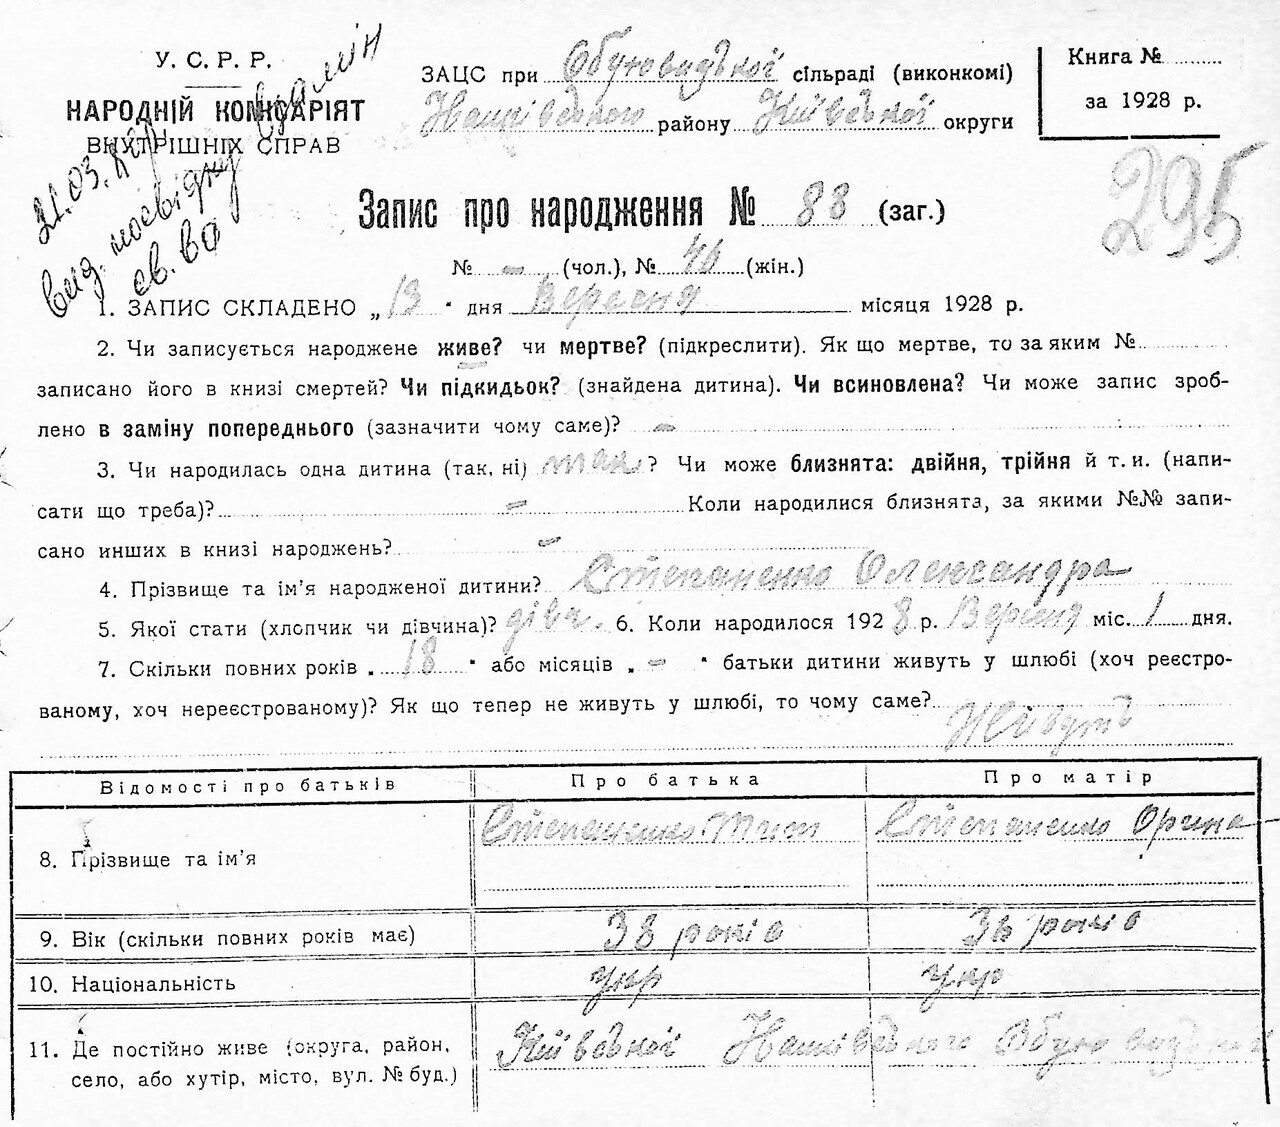 У. С. Р. Р.
НАРОДНІЙ КОМІСАРІЯТ
ВНУТРІШНІХ СПРАВ
21.03.
вид. посвідку
св. во
ЗАЦС при Обуховицької сільраді (виконкомі)
району Київської округи
Книга №
за 1928 р.
295
Запис про народження № 88 (заг.)
№ – (чол.), № 46 (жін.)
1. ЗАПИС СКЛАДЕНО „ 13 " дня Вересня місяця 1928 р.
2. Чи записується народжене живе? чи мертве? (підкреслити). Як що мертве, то за яким №
записано його в книзі смертей? Чи підкидьок? (знайдена дитина). Чи всиновлена? Чи може запис зроб-
лено в заміну попереднього (зазначити чому саме)? –
3. Чи народилась одна дитина (так, ні) так ? Чи може близнята: двійня, трійня й т. и. (напи-
сати що треба)? – Коли народилися близнята, за якими №№ запи-
сано инших в книзі народжень? –
4. Прізвище та ім'я народженої дитини? Степаненко Олександра
5. Якої стати (хлопчик чи дівчина)? дівч. 6. Коли народилося 192 8 р. Вересня міс. 1 дня.
7. Скільки повних років „ 18 " або місяців „ – " батьки дитини живуть у шлюбі (хоч реєстро-
ваному, хоч нереєстрованому)? Як що тепер не живуть у шлюбі, то чому саме?
Живуть
Відомості про батьків Про батька Про матір
8. Прізвище та ім'я Степаненко Степаненко Орина
9. Вік (скільки повних років має) 38 років 36 років
10. Національність укр укр
11. Де постійно живе (округа, район, Київської Обуховицької
село, або хутір, місто, вул. № буд.)